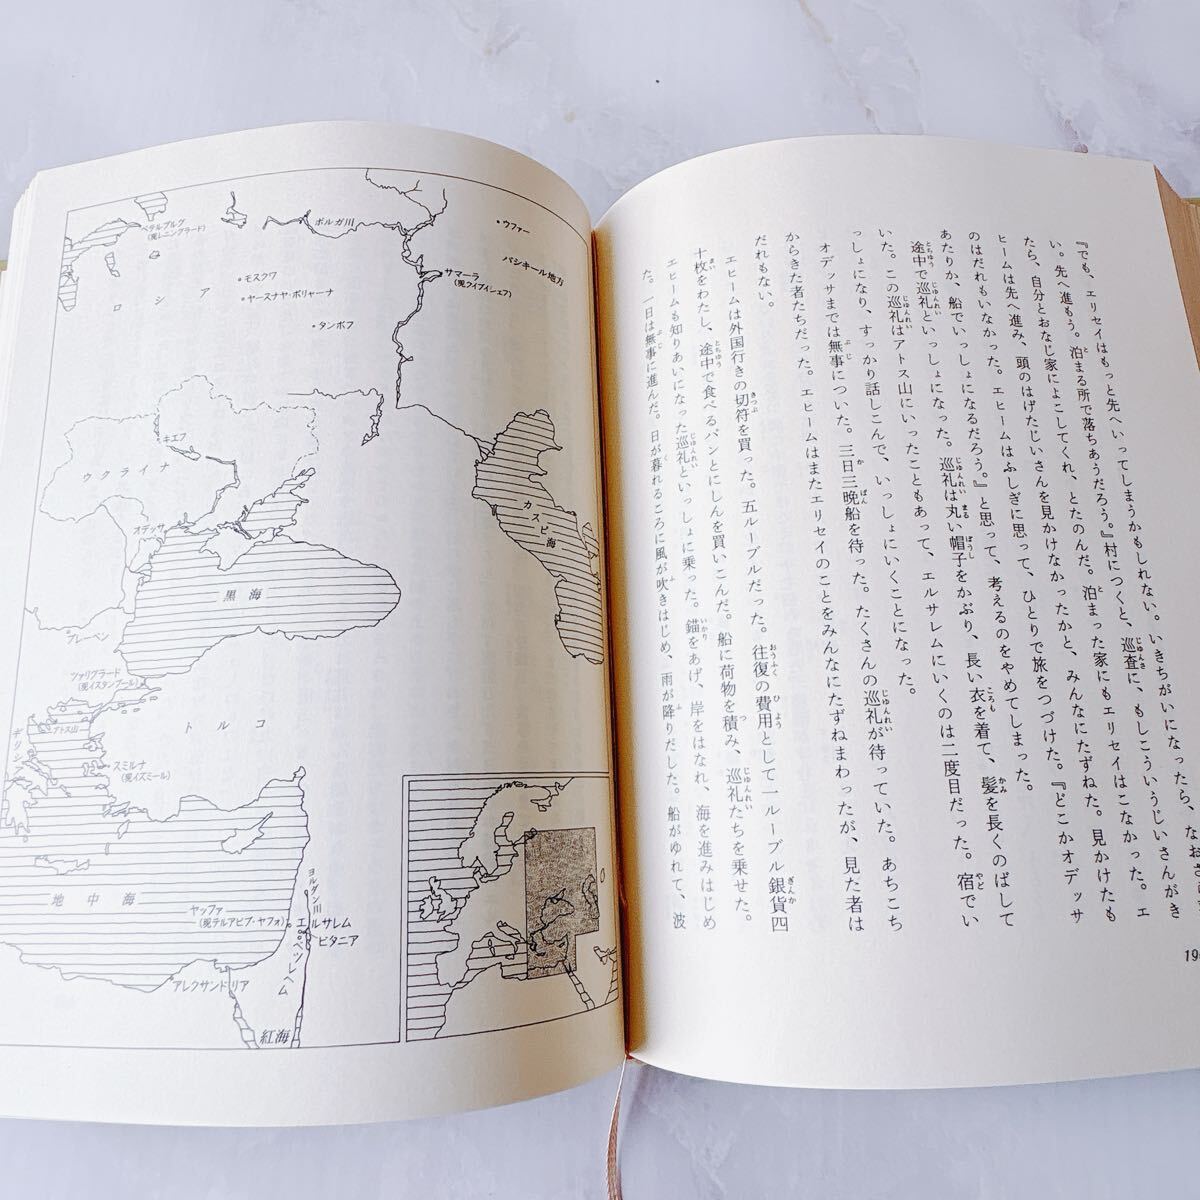 『でも、エリセイはもっと先へいってしまうかもしれない。いきちがいになったら、なおさ
い。先へ進もう。泊まる所で落ちあうだろう。』村につくと、巡査に、もしこういうじいさんがき
たら、自分とおなじ家によこしてくれ、とたのんだ。泊まった家にもエリセイはこなかった。エ
ヒームは先へ進み、頭のはげたじいさんを見かけなかったかと、みんなにたずねた。見かけたも
のはだれもいなかった。エヒームはふしぎに思って、ひとりで旅をつづけた。『どこかオデッサ
あたりか、船でいっしょになるだろう。』と思って、考えるのをやめてしまった。
途中で巡礼といっしょになった。巡礼は丸い帽子をかぶり、長い衣を着て、髪を長くのばして
いた。この巡礼はアトス山にいったこともあって、エルサレムにいくのは二度目だった。宿でい
っしょになり、すっかり話しこんで、いっしょにいくことになった。
オデッサまでは無事についた。三日三晩船を待った。たくさんの巡礼が待っていた。あちこち
からきた者たちだった。エヒームはまたエリセイのことをみんなにたずねまわったが、見た者は
だれもない。
エヒームは外国行きの切符を買った。五ルーブルだった。往復の費用として一ルーブル銀貨四
十枚をわたし、途中で食べるパンとにしんを買いこんだ。船に荷物を積み、巡礼たちを乗せた。
エヒームも知りあいになった巡礼といっしょに乗った。錨をあげ、岸をはなれ、海を進みはじめ
た。一日は無事に進んだ。日が暮れるころに風が吹きはじめ、雨が降りだした。船がゆれて、波
ペテルブルグ
(現レニングラード)
ボルガ川
ウファー
バシキール地方
サマーラ
(現クイブイシェフ)
モスクワ
ヤースナヤ・ポリャーナ
ロシア
タンボフ
キエフ
ウクライナ
オデッサ
カスピ海
黒海
プレーベン
ツァリグラード
(現イスタンブール)
トルコ
アトス山
ギリシ
スミルナ
(現イズミール)
地中海
ヨルダン川
ヤッファ
(現テルアビブ・ヤフォ)
エルサレム
ビタニア
ベツレヘム
アレクサンドリア
紅海